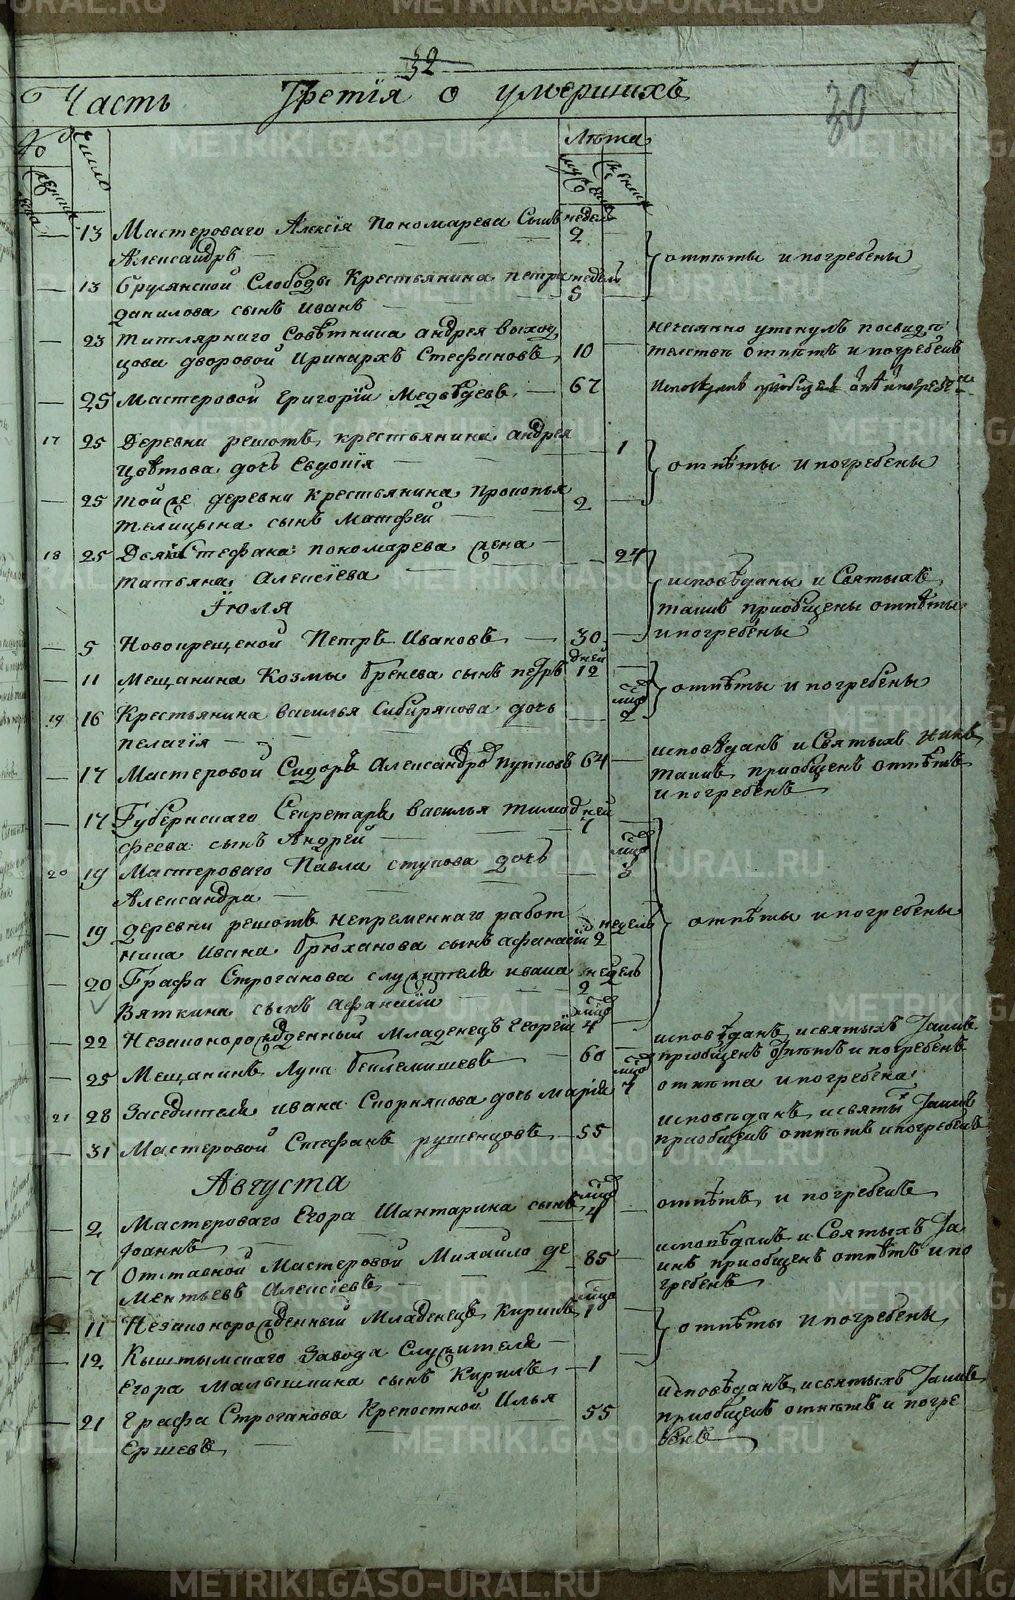 32
30
Часть Третія о умершихъ
Число
Лѣта
Мужеска
Женска
13 Мастероваго Алексія Пономарева Сынъ недель 2
Александръ
отпѣты и погребены
13 Бруснской Слободы Крестьянина петра недель 5
Данилова сынъ Иванъ
23 Титлярнаго Совѣтника андрея выход
нечаянно утонулъ
цова дворовой Иринархъ Стефановъ 10
отпѣтъ и погребенъ
25 Мастеровой Григорій Медвѣдевъ 67
17 25 Деревни решотъ крестьянина андрея 1
Цвѣтова дочь Евдокія
отпѣты и погребены
25 той же деревни крестьянина прокопья 2
Телицына сынъ Матфей
18 25 Стефана пономарева жена 24
татьяна Алексіева
исповѣданы и Святыхъ
Таинъ приобщены отпѣты
и погребены
Іюля
5 Новокрещеной Петръ Ивановъ 30
11 Мещанина Козмы Бренева сынъ петръ дней 12
отпѣты и погребены
19 16 Крестьянина василья Сибирякова дочь 2
пелагія
17 Мастеровой Сидоръ Александровъ пупковъ 64
исповѣданъ и Святыхъ
Таинъ приобщенъ отпѣтъ
и погребенъ
17 Губернскаго Секретаря василья тимо дней 7
феева сынъ Андрей
20 19 Мастероваго Павла ступова дочь 3
Александра
19 деревни решотъ непременнаго работ недель 2
ника Ивана Брюханова сынъ афанасій
отпѣты и погребены
20 Графа Строганова служителя ивана недель 2
Вяткина сынъ афанасій
22 Незаконорожденный Младенецъ Георгій 4
25 Мещанинъ Лука Беклемишевъ 60
исповѣданъ и святыхъ Таинъ
приобщенъ отпѣтъ и погребенъ
21 28 Заседателя ивана Скорнякова дочь марія 7
отпѣта и погребена
31 Мастеровой Стефанъ рушенцовъ 55
исповѣданъ и святы Таинъ
приобщенъ отпѣтъ и погребенъ
Августа
2 Мастероваго Егора Шантарина сынъ 4
Іоаннъ
отпѣтъ и погребенъ
7 Отставной Мастеровой Михайло де 85
ментьевъ Алексіевъ
исповѣданъ и Святыхъ Та
инъ приобщенъ отпѣтъ и по
гребенъ
11 Незаконорожденный Младенецъ Кирикъ 1
отпѣты и погребены
12 Кыштымскаго Завода Служителя
Егора Малышкина сынъ Кирилъ 1
21 Графа Строганова Крепостной Илья 55
Ершевъ
исповѣданъ и святыхъ Таинъ
приобщенъ отпѣтъ и погре
бенъ
METRIKI.GASO-URAL.RU